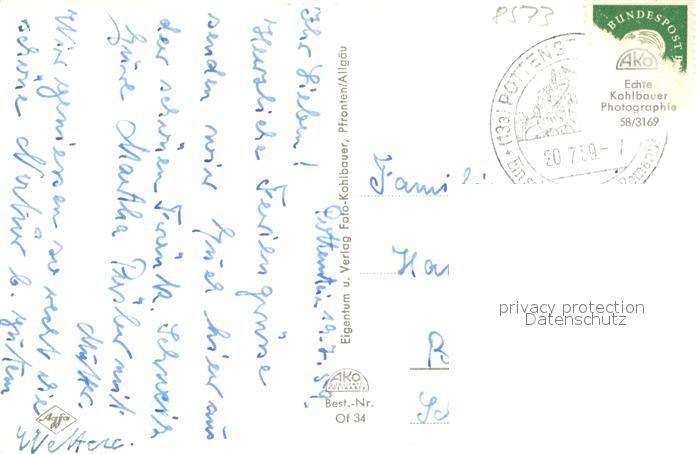 8573
BUNDESPOST
AkO
Echte
Kohlbauer
Photographie
58/3169
(13a) POTTENS
20.7.59-
Pottenstein 19.7.59.
Ihr Lieben!
Herzliche Feriengrüsse
senden wir Euch hier aus
der schönen Fränk. Schweiz
Eure Martha Rösler mit
Mutter.
Wir geniessen so recht die
schöne Natur b. gutem
Wetter.
Eigentum u. Verlag Foto-Kohlbauer, Pfronten/Allgäu
AkO
Best.-Nr.
Of 34
Agfa
Famil
Ha
privacy protection
Datenschutz